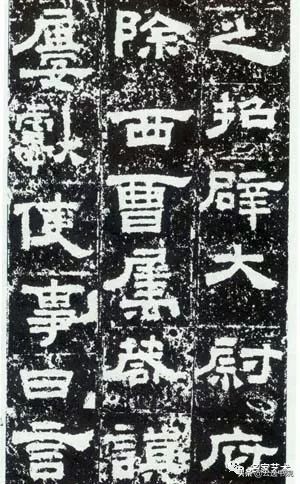 之招辟大尉府
除西曹屬啓
屢獻使事日言
名家艺术